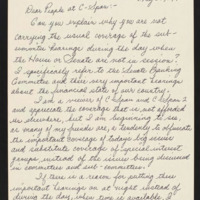 Dear People at C-Span:-
Can you explain why you are not
carrying the usual coverage of the sub-
committee hearings during the day, when
the House or Senate are not in session?
I specifically refer to the Senate Banking
Committee and their very important hearings
about the financial state of our country.
I am a viewer of C-Span and C-Span 2
and appreciate the coverage that is not afforded
us elsewhere, but I am beginning to see,
as many of my friends are, a tendency to
the important coverage of today's big issues and
substitute coverage of special interest
groups instead of the issues being discussed
in committees and sub-committees.
If there is a reason for putting these
important hearings on at night instead of
during the day, when time is available, I